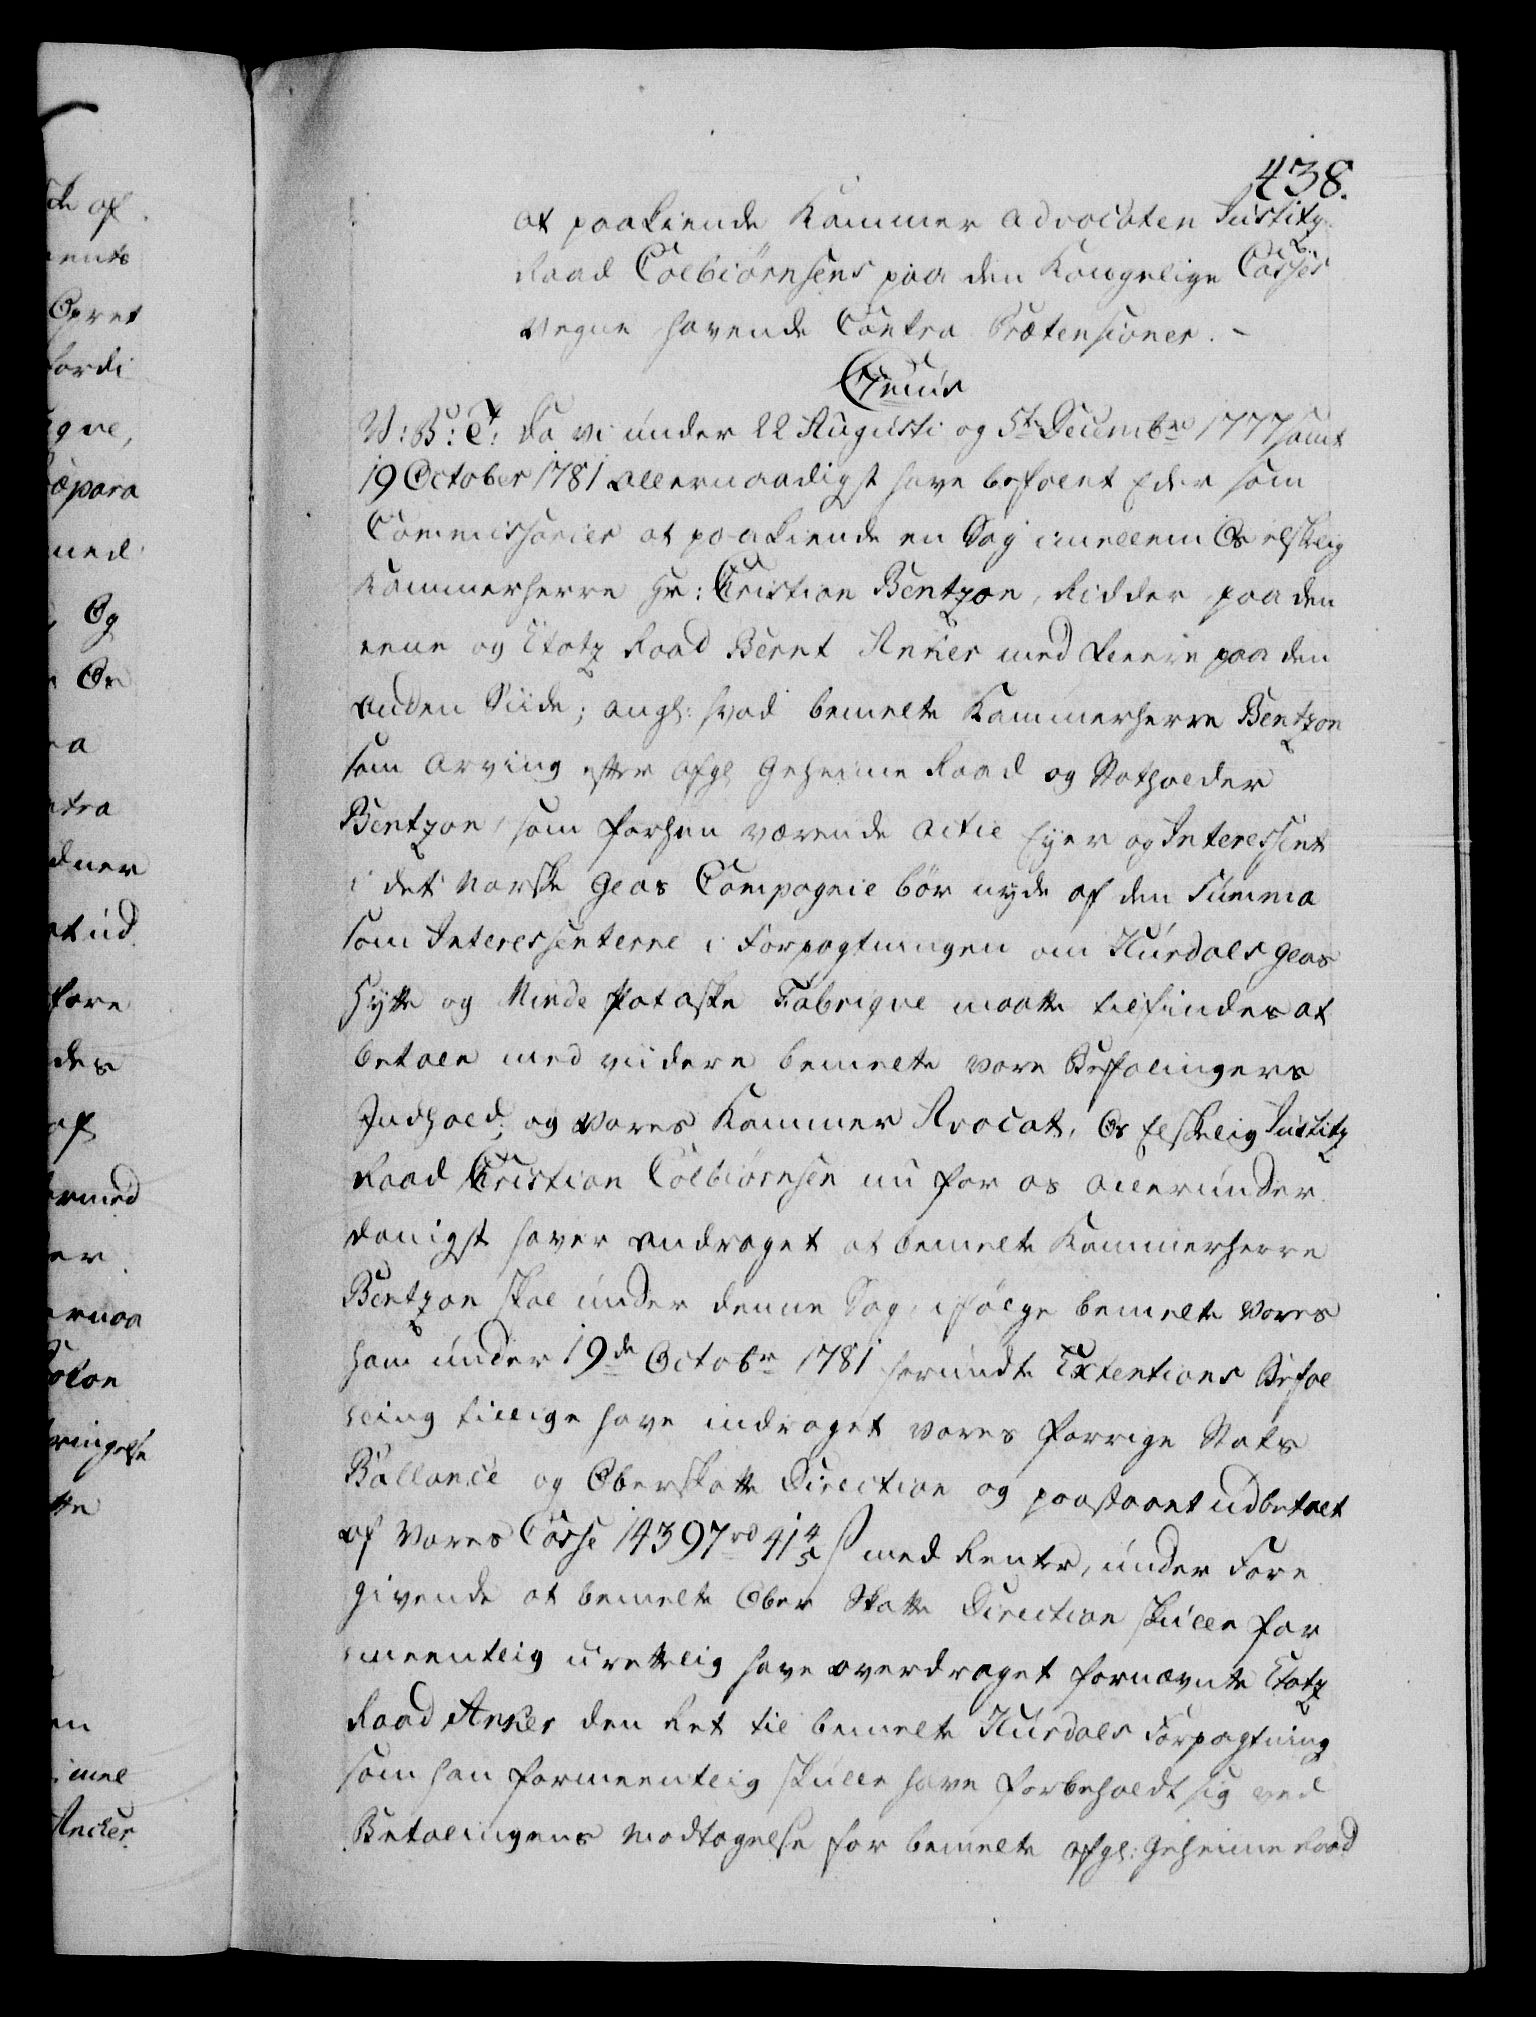 438.
at paakiende Kammer advocaten Justitz
Raad Colbiørnsens paa den Kongelige Casses
Vegne havende Contra Prætensioner. -
Genus
V: B: T: da vi under 22 Augusti og 5te Decembr 1777 samt
19 October 1781 allernaadigst have befalet Eder som
Commissarier at paakiende en Sag imellem Os elskelig
Kammerherre Hr: Cristian Bentzon, Ridder, paa den
eene og Etatz Raad Bernt Anker med Fleere paa den
anden Siide; angl: hvad bemelte Kammerherre Bentzon
som Arving efter afgl Geheime Raad og Statholder
Bentzon, som forhen værende actie Eyer og Interessent
i det norske Glas Compagnie bør nyde af den Summa
som Interessenterne i Forpagtningen om Hurdals glas
Hytte og Minde Potaske Fabriqve maatte tilfindes at
betale med viidere bemelte vore Befalingers
Indhold; og Vores Kammer Avocat, Os Elskelig Justitz
Raad Cristian Colbiørnsen nu for os allerunder
danigst haver andraget at bemelte Kammerherre
Bentzon skal under denne Sag, ifølge bemelte Vores
ham under 19de Octobr 1781 forundte Extentions Befal
ling tillige have inddraget vores forrige Stats
Ballance og Oberskatte Direction og paastaaet udbetalt
af Vores Casse 14397 rd 41 4/5 s med Renter, under Fore
givende at bemelte Ober Skatte Direction skulle for
meentlig urettelig have overdraget fornævnte Etatz
Raad Anker den Ret til bemelte Hurdals Forpagtning
som han formeentlig skulle have forbeholdt sig ved
Betalingens Modtagelse for bemelte afgl: Geheime Raad